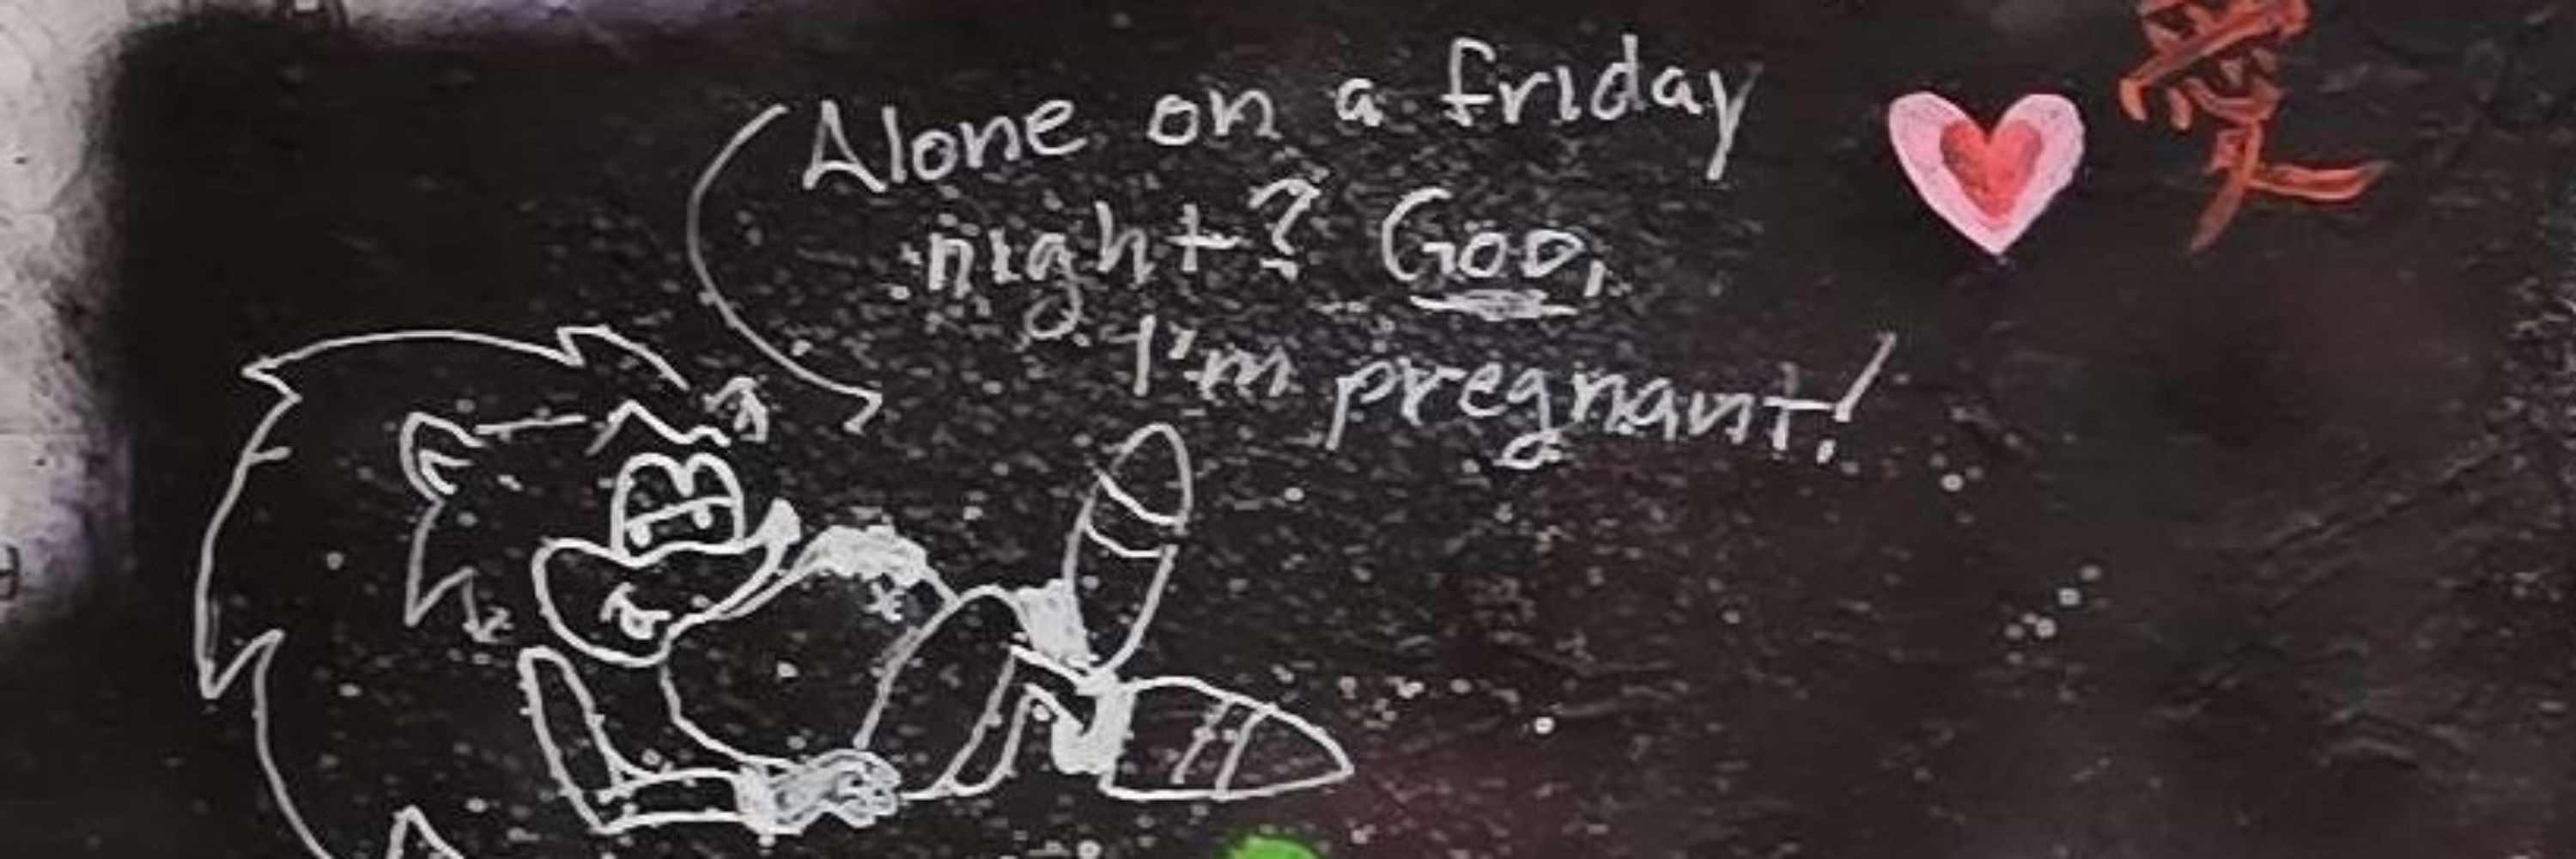 Alone on a friday
night? God,
I'm pregnant!
愛